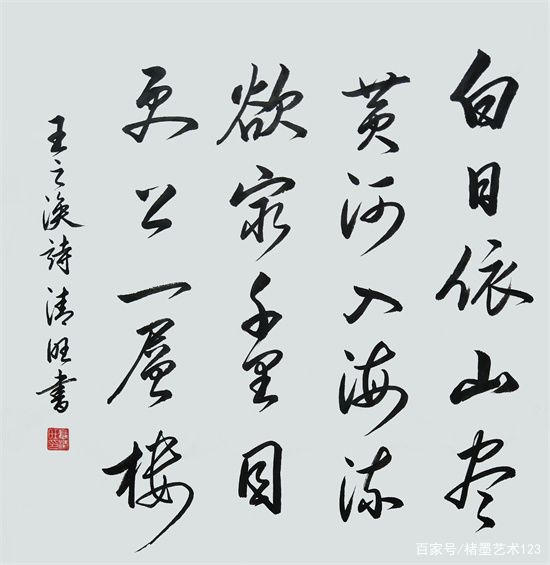 白日依山尽
黄河入海流
欲穷千里目
更上一層楼
王之涣詩清旺书
百家号/楮墨艺术123